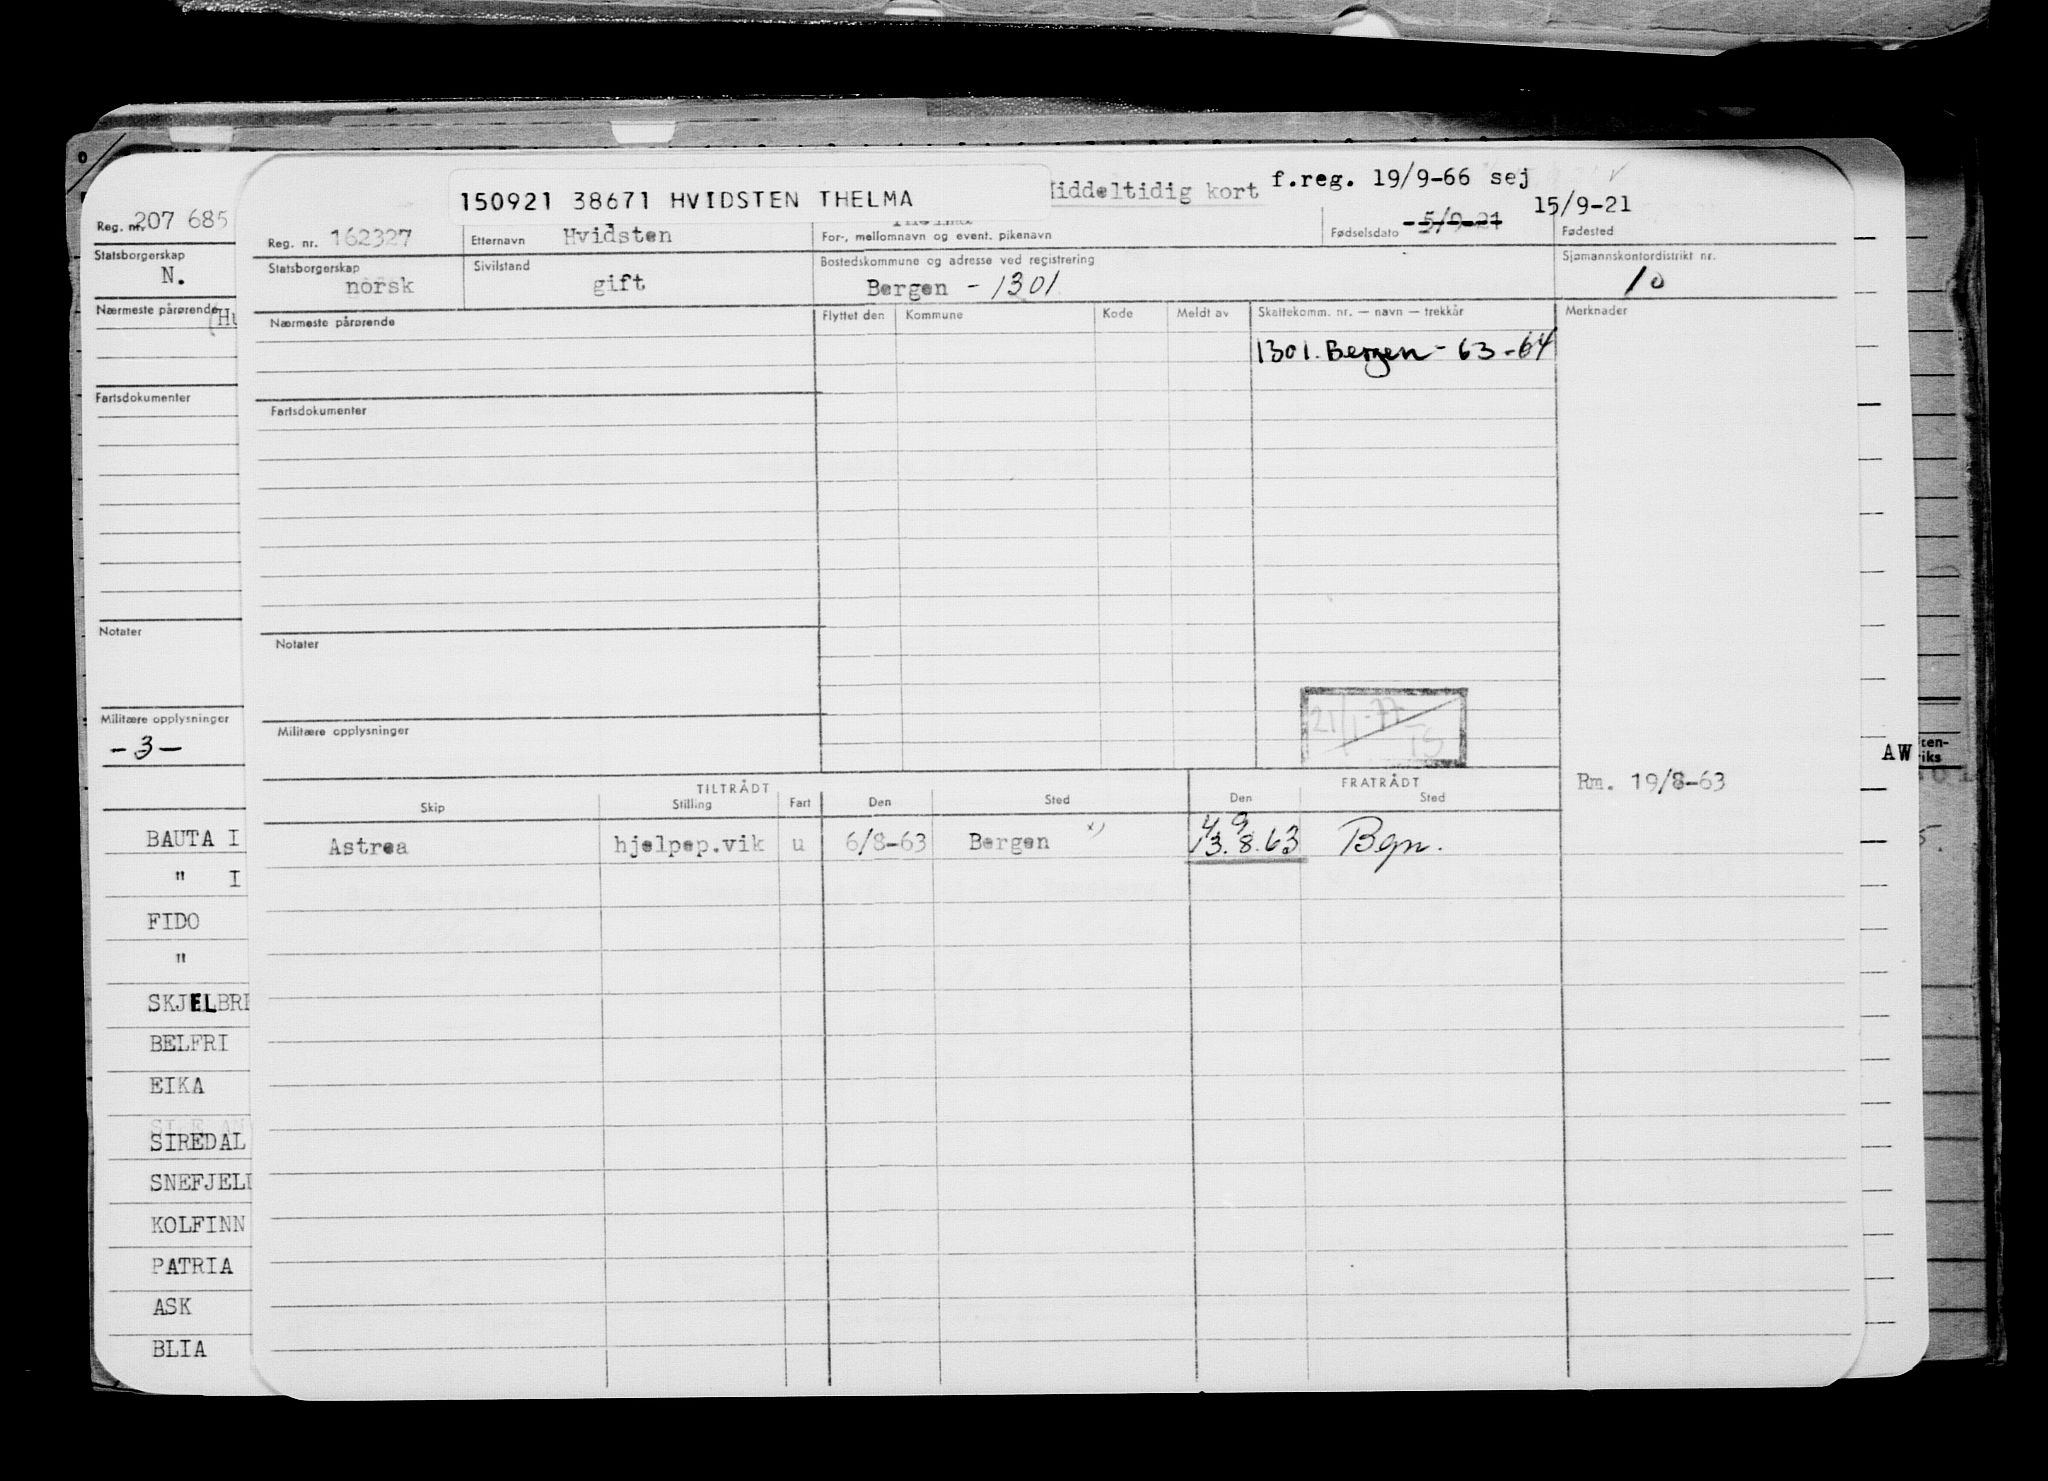 150921 38671 HVIDSTEN THELMA
iddeltidig kort f.reg. 19/9-66 sej
Reg. nr. 207 685
Reg. nr. 162327 Etternavn Hvidsten For-, mellomnavn og event. pikenavn Fødselsdato 5/9-21 15/9-21 Fødested
Statsborgerskap N.
Statsborgerskap norsk Sivilstand gift Bostedskommune og adresse ved registrering Bergen - 1301 Sjømannskontordistrikt nr. 10
Nærmeste pårørende (Hu
Nærmeste pårørende Flyttet den Kommune Kode Meldt av Skattekomm. nr. — navn — trekkår Merknader
1301. Bergen - 63 - 64
Fartsdokumenter
Fartsdokumenter
Notater
Notater
21/1-77
TS
Militære opplysninger
- 3 -
Militære opplysninger
AW
ten-
riks
TILTRÅDT FRATRÅDT Rm. 19/8-63
Skip Stilling Fart Den Sted Den Sted
Astrea hjelpep.vik u 6/8-63 Bergen x) 13.8.63 Bgn.
4 9
BAUTA I
" I
FIDO
"
SKJELBRE
BELFRI
EIKA
SIREDAL
SNEFJELL
KOLFINN
PATRIA
ASK
BLIA